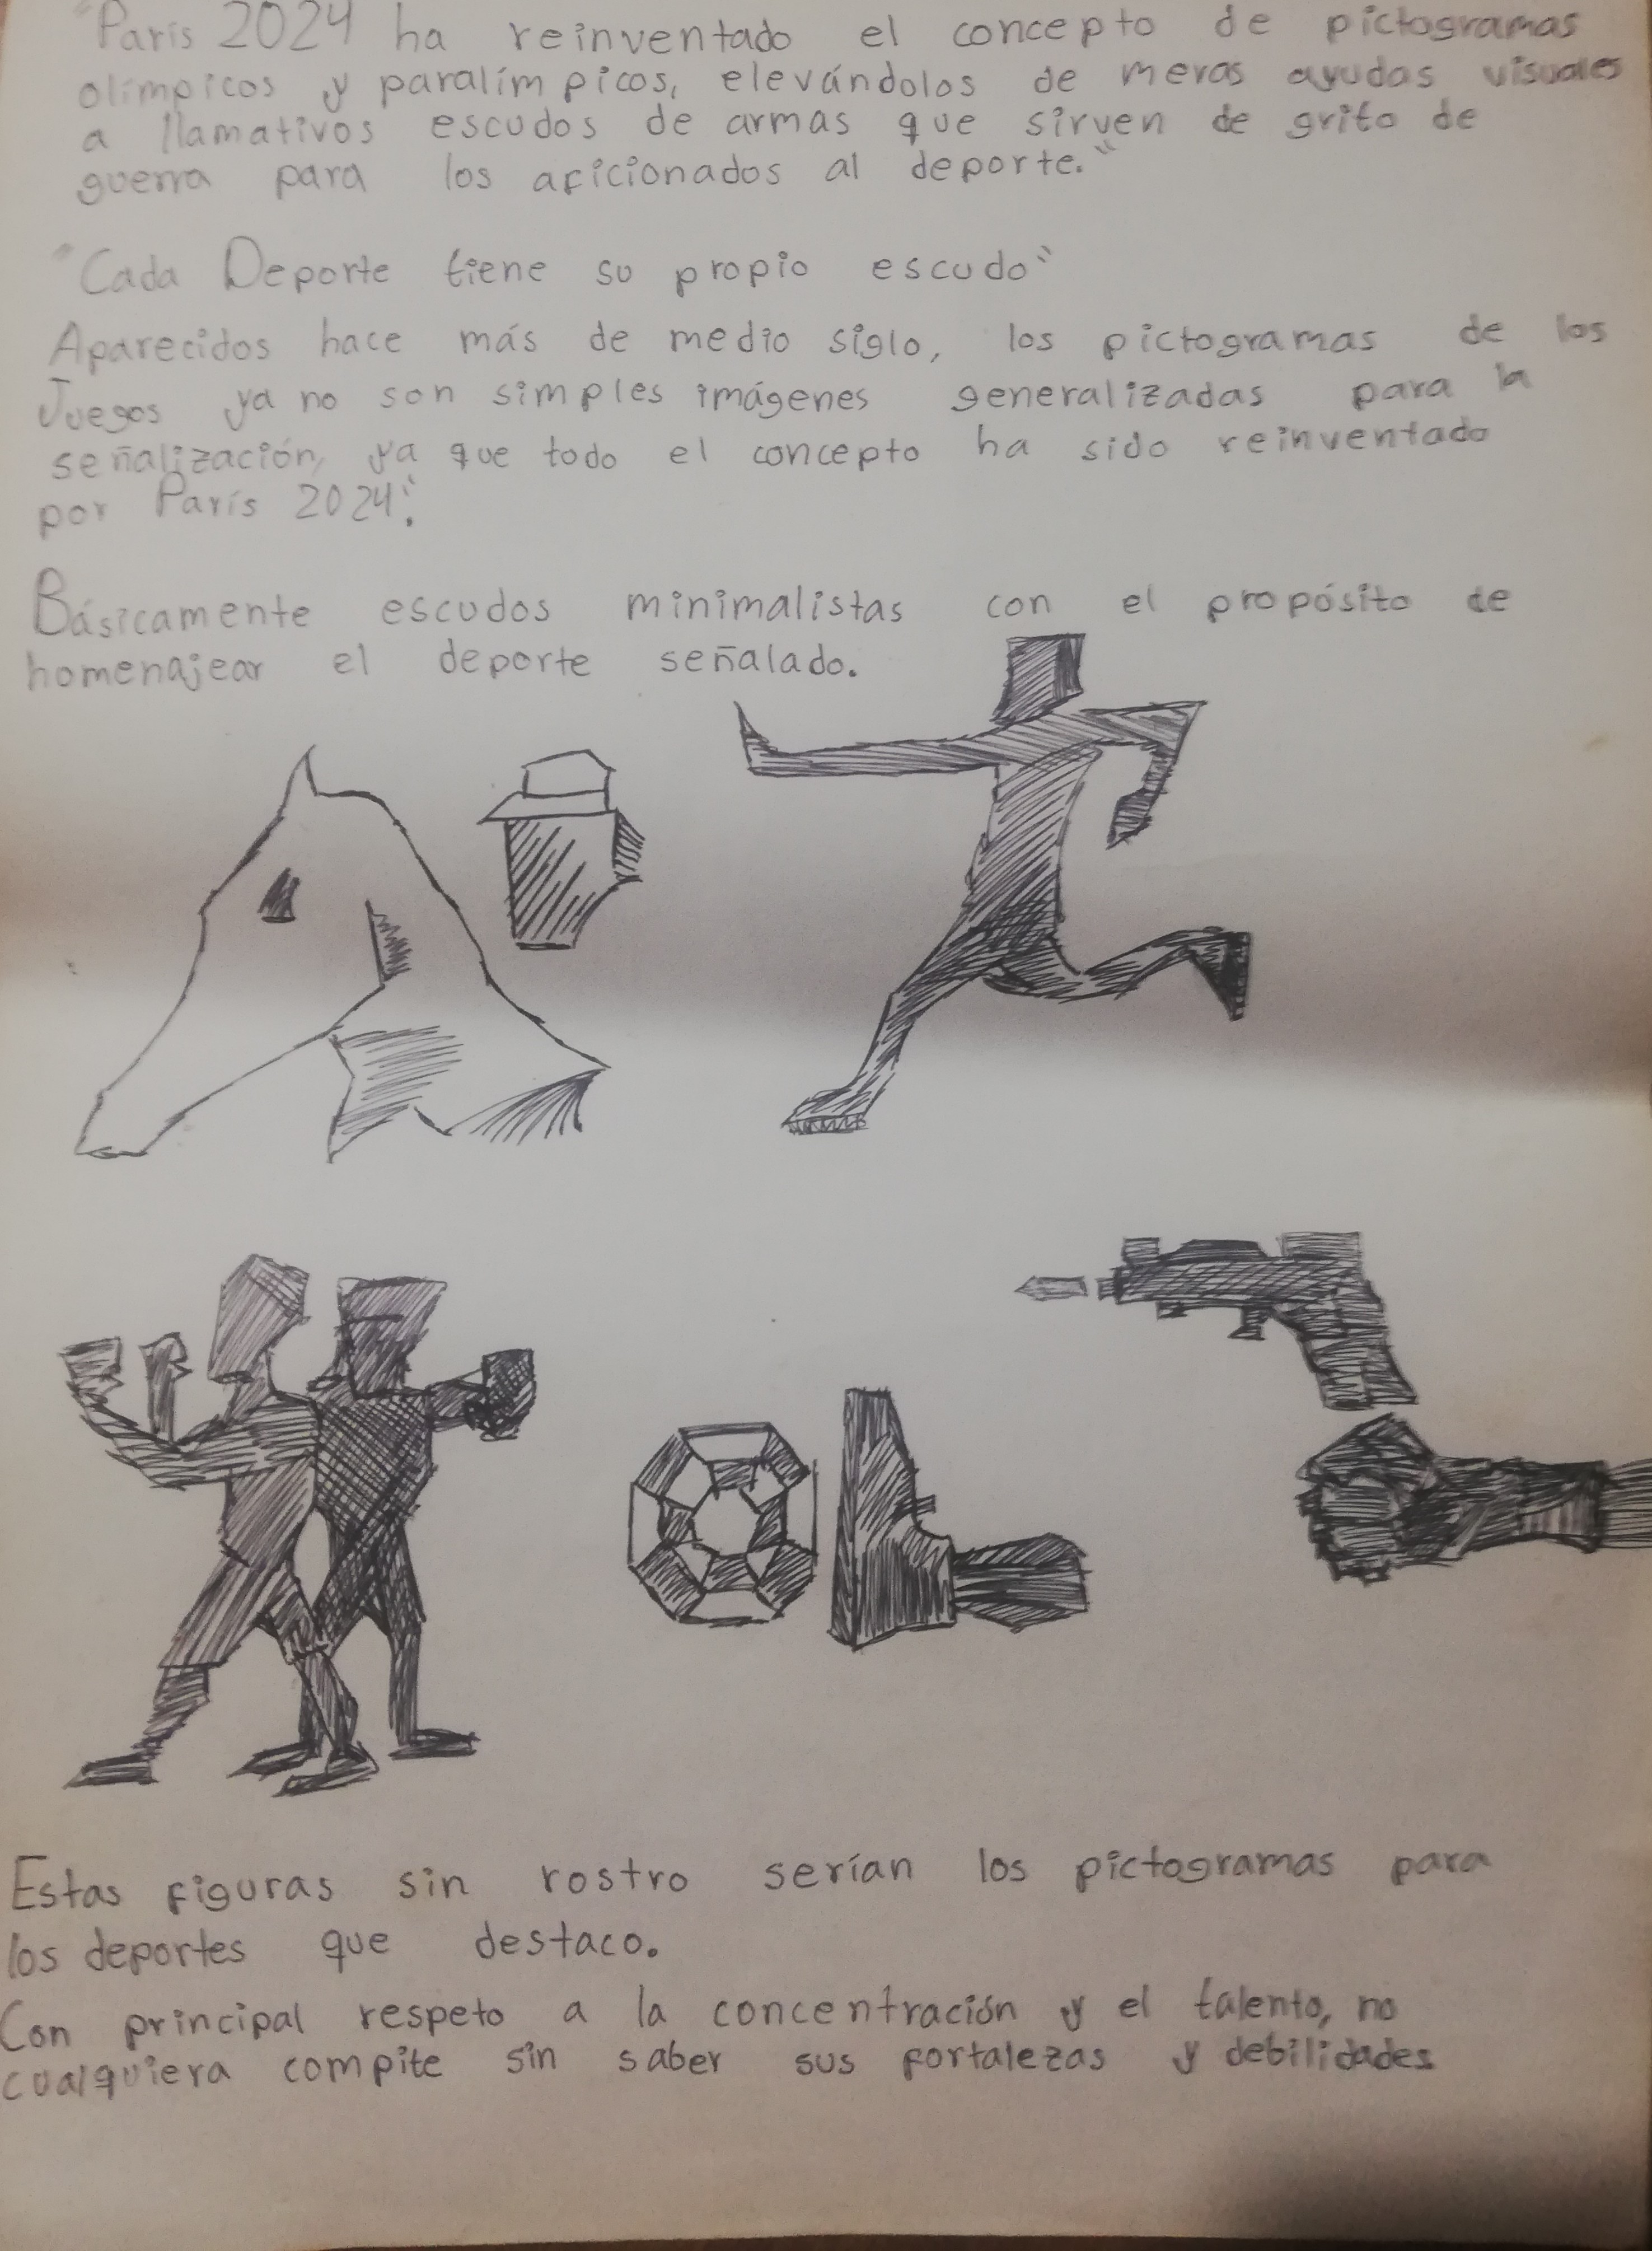 "París 2024 ha reinventado el concepto de pictogramas
olímpicos y paralímpicos, elevándolos de meras ayudas visuales
a llamativos escudos de armas que sirven de grito de
guerra para los aficionados al deporte."
"Cada Deporte tiene su propio escudo"
Aparecidos hace más de medio siglo, los pictogramas de los
Juegos ya no son simples imágenes generalizadas para la
señalización, ya que todo el concepto ha sido reinventado
por París 2024".
Básicamente escudos minimalistas con el propósito de
homenajear el deporte señalado.
Estas figuras sin rostro serían los pictogramas para
los deportes que destaco.
Con principal respeto a la concentración y el talento, no
cualquiera compite sin saber sus fortalezas y debilidades